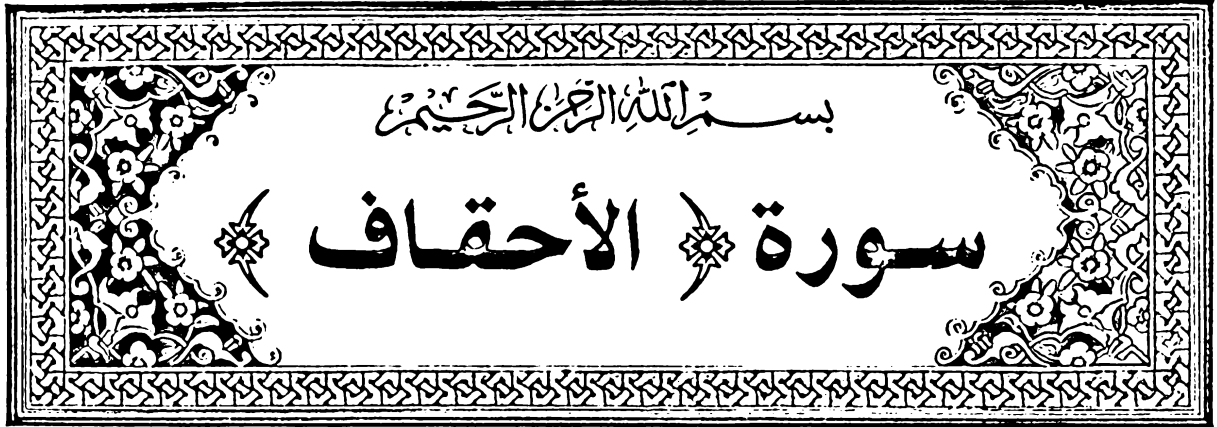 بسم الله الرحمن الرحيم
سورة ﴿ الأحقاف ﴾